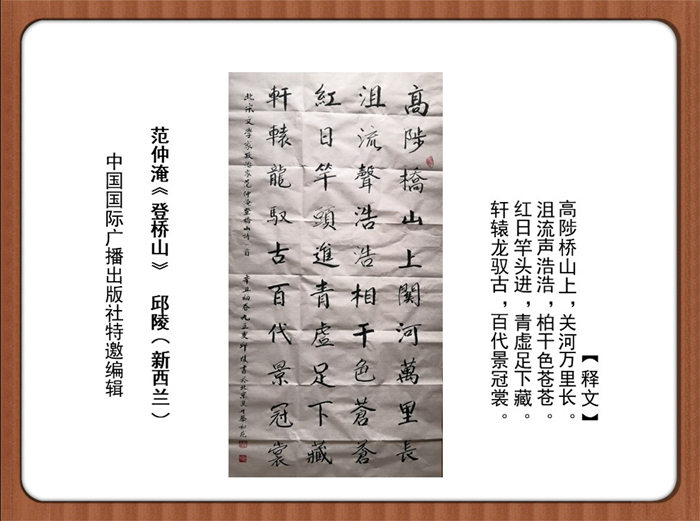 【释文】
高陟桥山上，关河万里长。
沮流声浩浩，柏干色苍苍。
红日竿头进，青虚足下藏。
轩辕龙驭古，百代景冠裳。
高陟橋山上關河萬里長
沮流聲浩浩相干色蒼蒼
紅日竿頭進青虛足下藏
軒轅龍馭古百代景冠裳
北宋文學家政治家范仲淹登橋山詩一首
范仲淹《登桥山》 邱陵（新西兰）
中国国际广播出版社特邀编辑